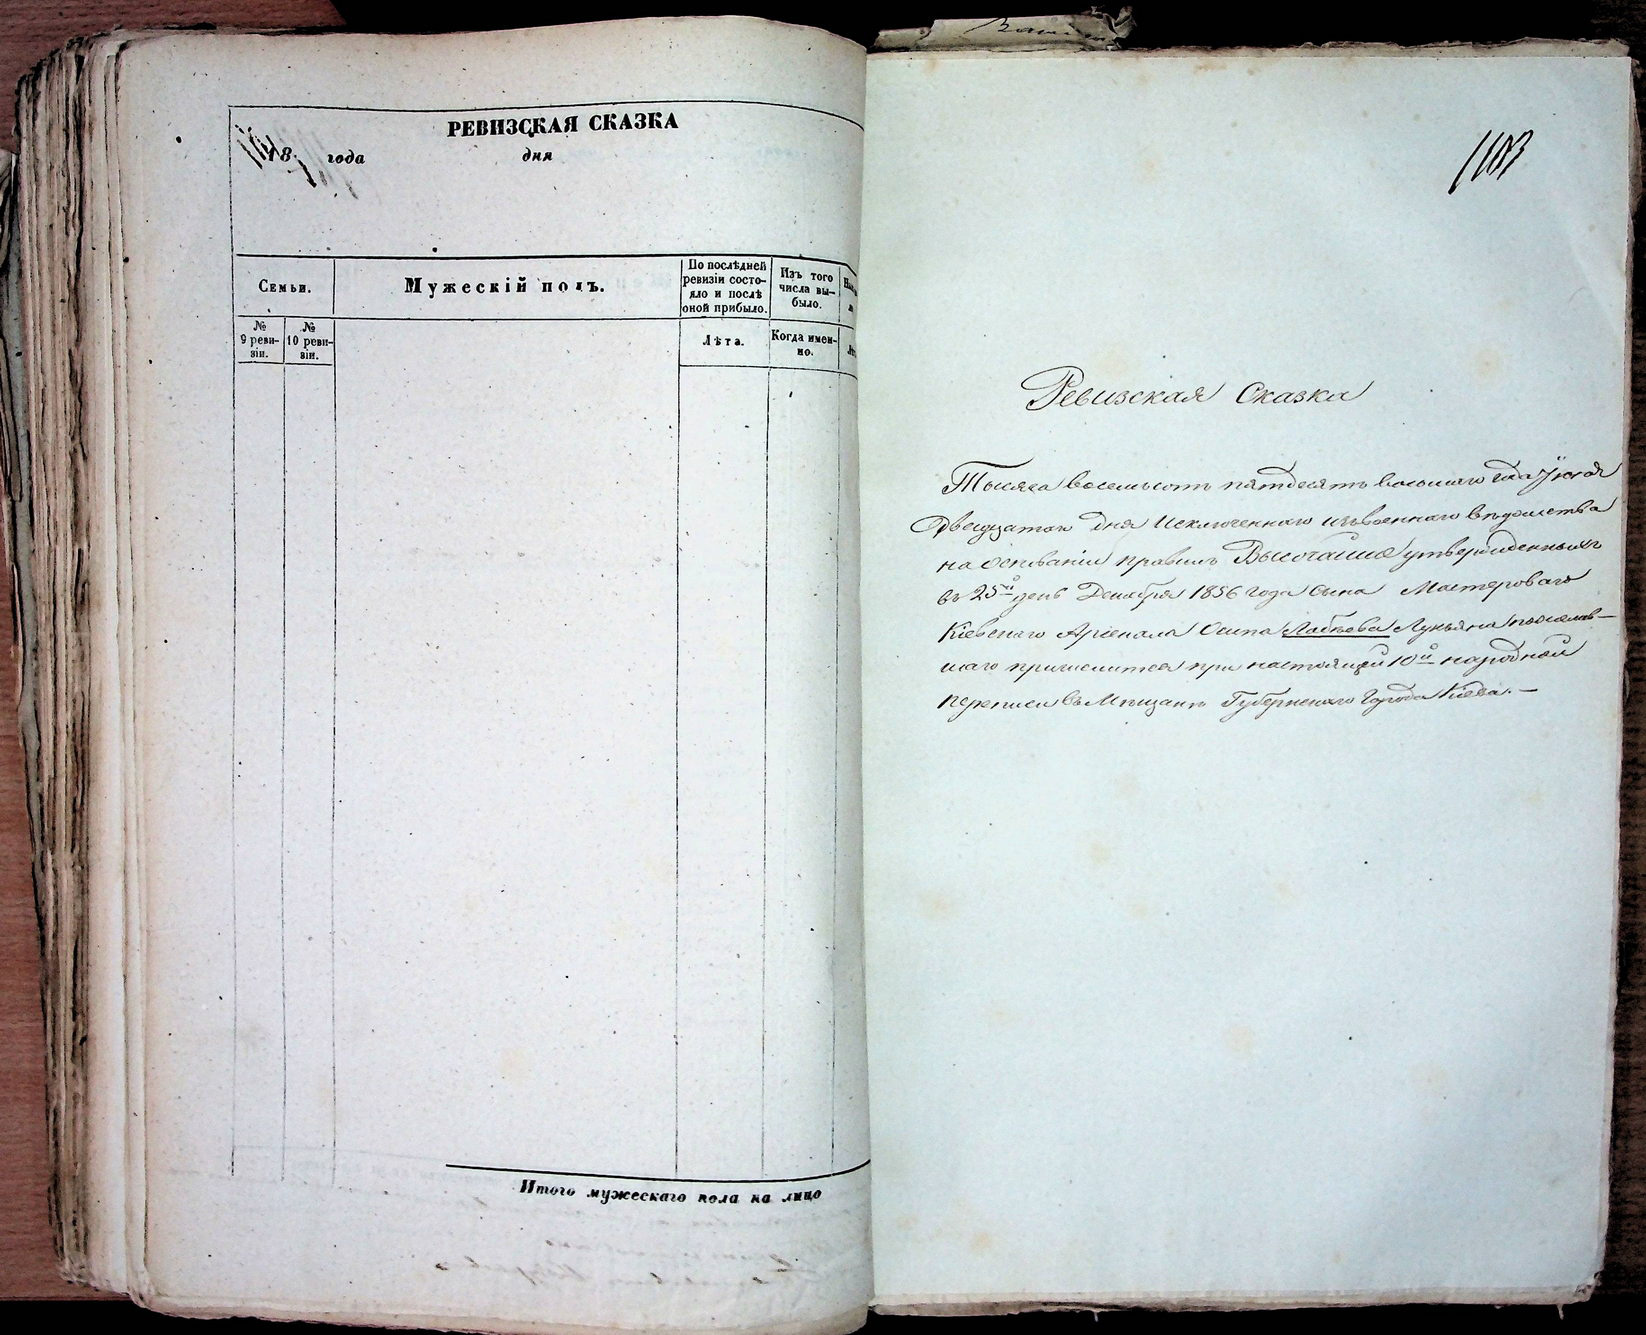 РЕВИЗСКАЯ СКАЗКА
18 года дня
Семьи.
Мужескій полъ.
По послѣдней
ревизіи состо-
яло и послѣ
оной прибыло.
Изъ того
числа вы-
было.
№
9 реви-
зіи.
№
10 реви-
зіи.
Лѣта.
Когда имен-
но.
Итого мужескаго пола на лицо
1103
Ревизская Сказка
Тысяча восемьсотъ пятдесятъ восьмаго года
Двадцатого дня Исключеннаго изъ военнаго вѣдомства
на основаніи правилъ Высочайше утвержденныхъ
въ 25й день Декабря 1856 года Сына Мастероваго
Кіевскаго Арсенала Осипа Лукьяна пожелав-
шаго причислится при настоящей 10й народной
переписи въ Мѣщане Губернскаго Города Кіева.—